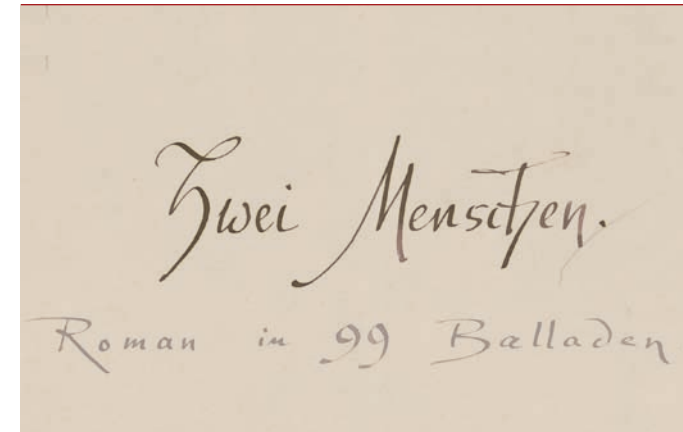 Zwei Menschen.
Roman in 99 Balladen